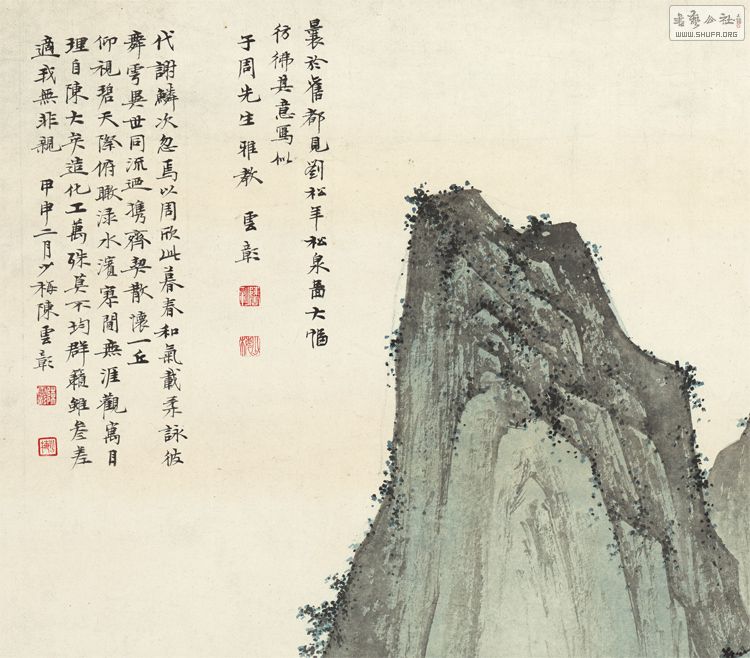 曩於舊都見劉松年松泉圖大幅
彷彿其意寫似
子周先生雅教 雲彰
代謝鱗次忽焉以周欣此暮春和氣載柔詠彼
舞雩異世同流迺攜齊契散懷一丘
仰視碧天際俯瞰淥水濱寥間無涯觀寓目
理自陳大矣造化工萬殊莫不均群籟雖叁差
適我無非親 甲申二月少梅陳雲彰
書藝公社
WWW.SHUFA.ORG